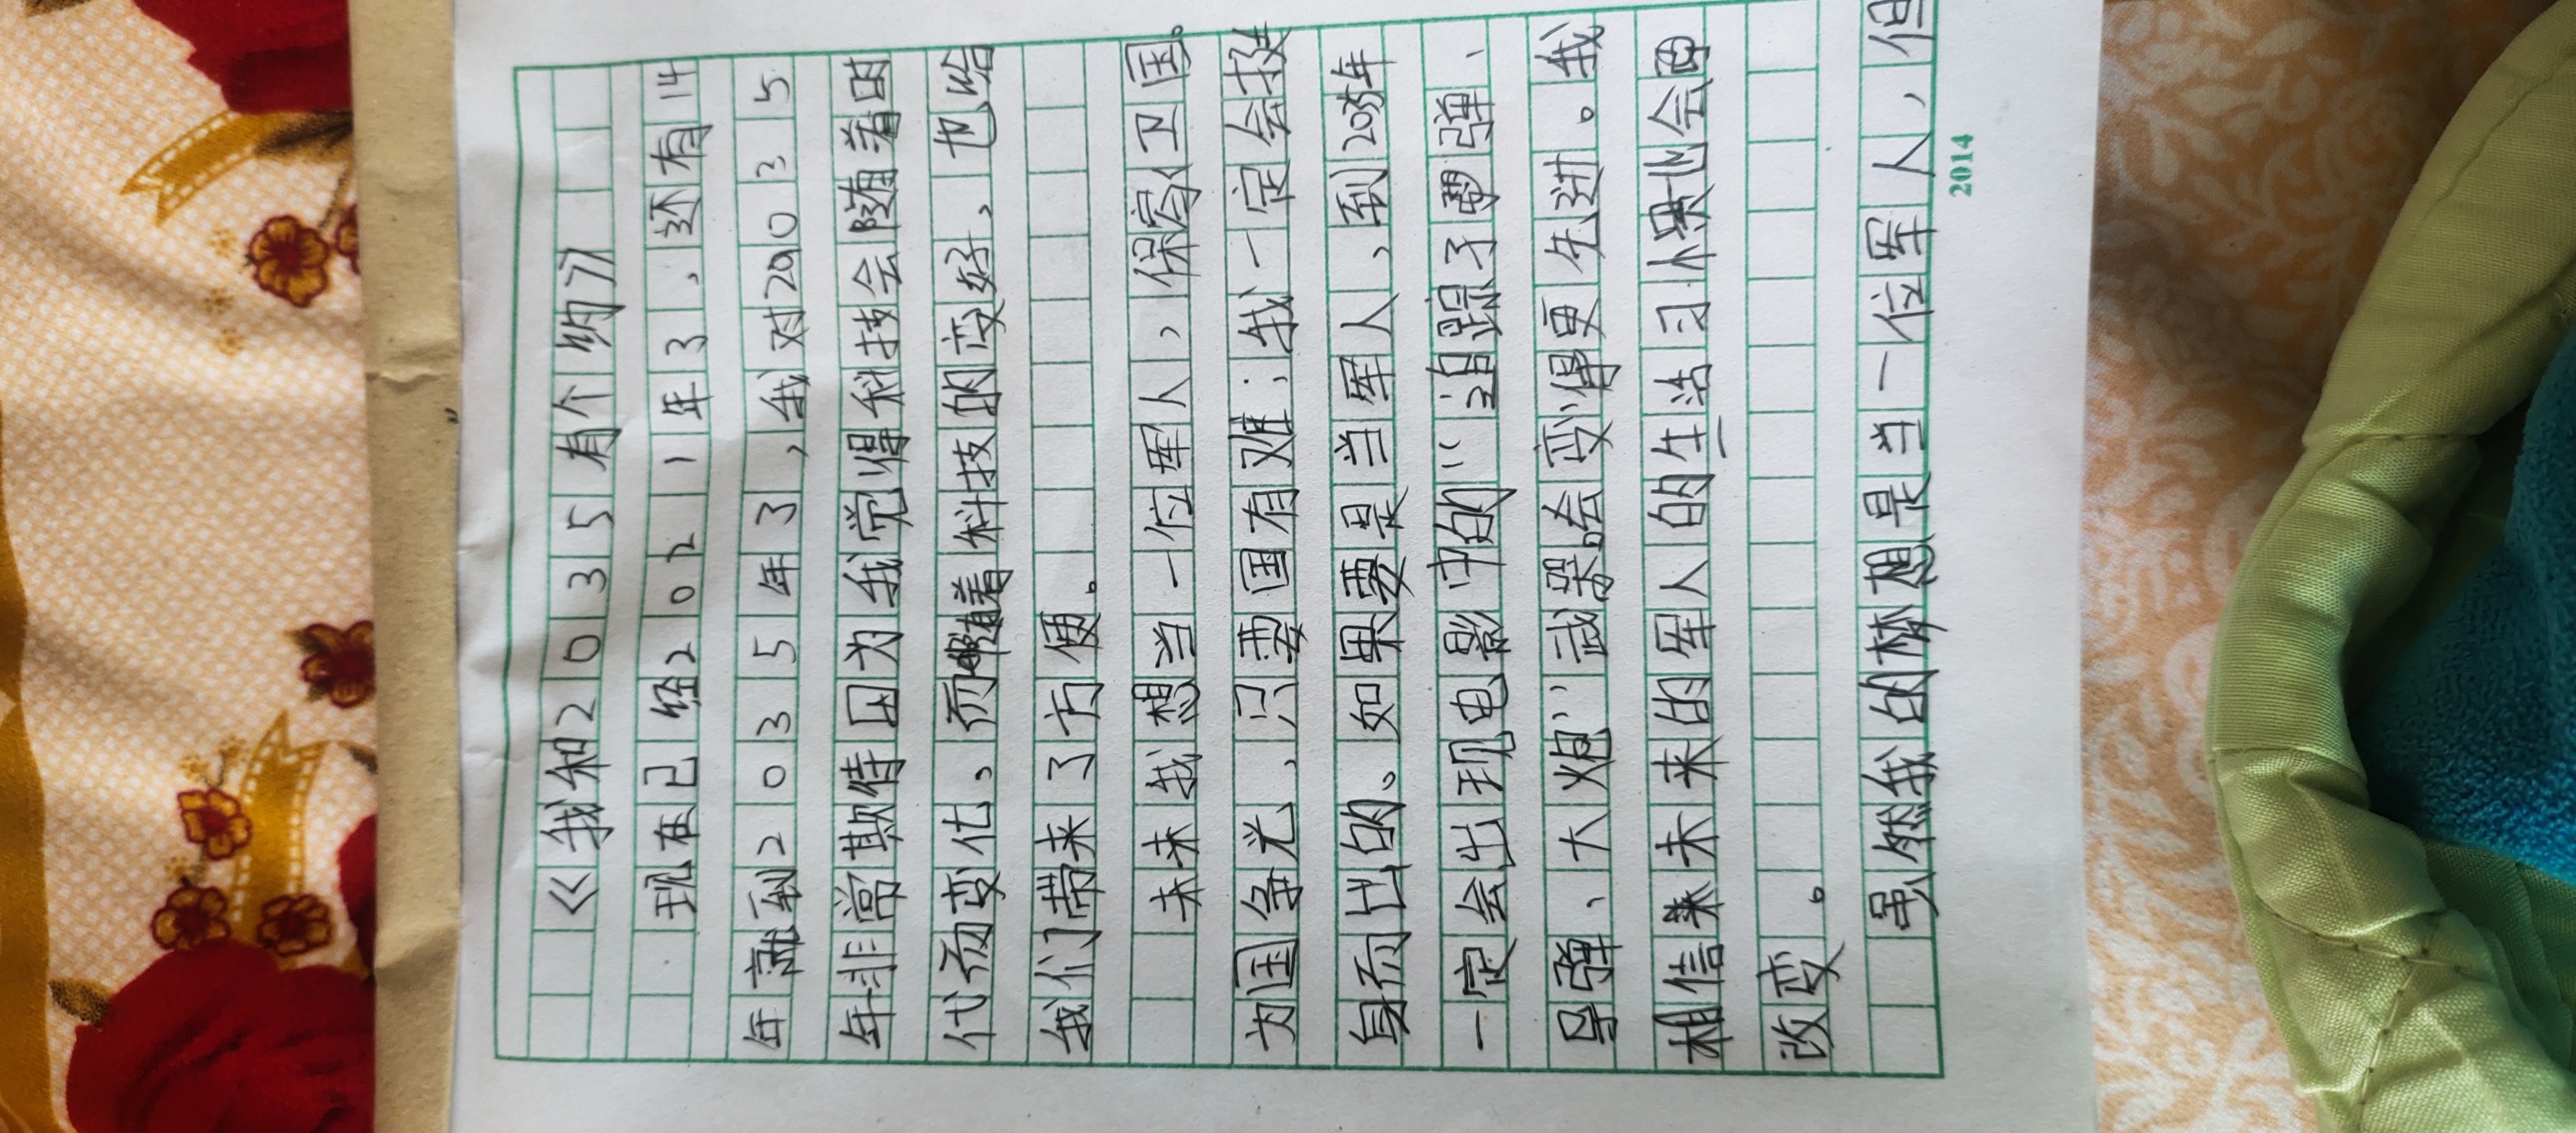 《我和2035有个约》
现在已经2021年3，还有14
年就到2035年3，我对2003 5
年非常欺待因为我觉得科技会随着时
代而变化，而随着科技的变好，也给
我们带来了方便。
未来我想当一位军人，保家卫国。
为国争光，只要国有难：我一定会挺
身而出的。如果要是当军人，到2035年
一定会出现电影中的"追踪子弹、
导弹、大炮"武器会变得更先进。我
相信未来的军人的生活习惯也会
改变。
虽然我的梦想是当一位军人，但
2014